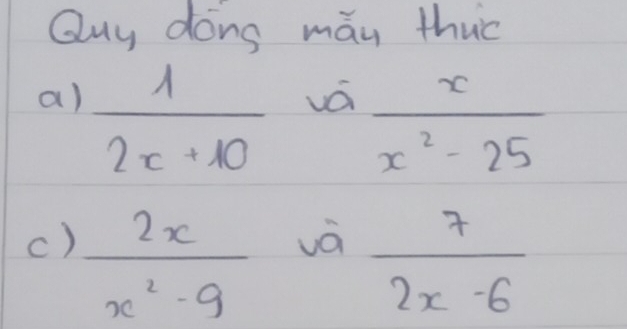 Quy đồng mẫu thức
a) 1/(2x + 10) và x/(x² - 25)
c) 2x/(x² - 9) và 7/(2x - 6)